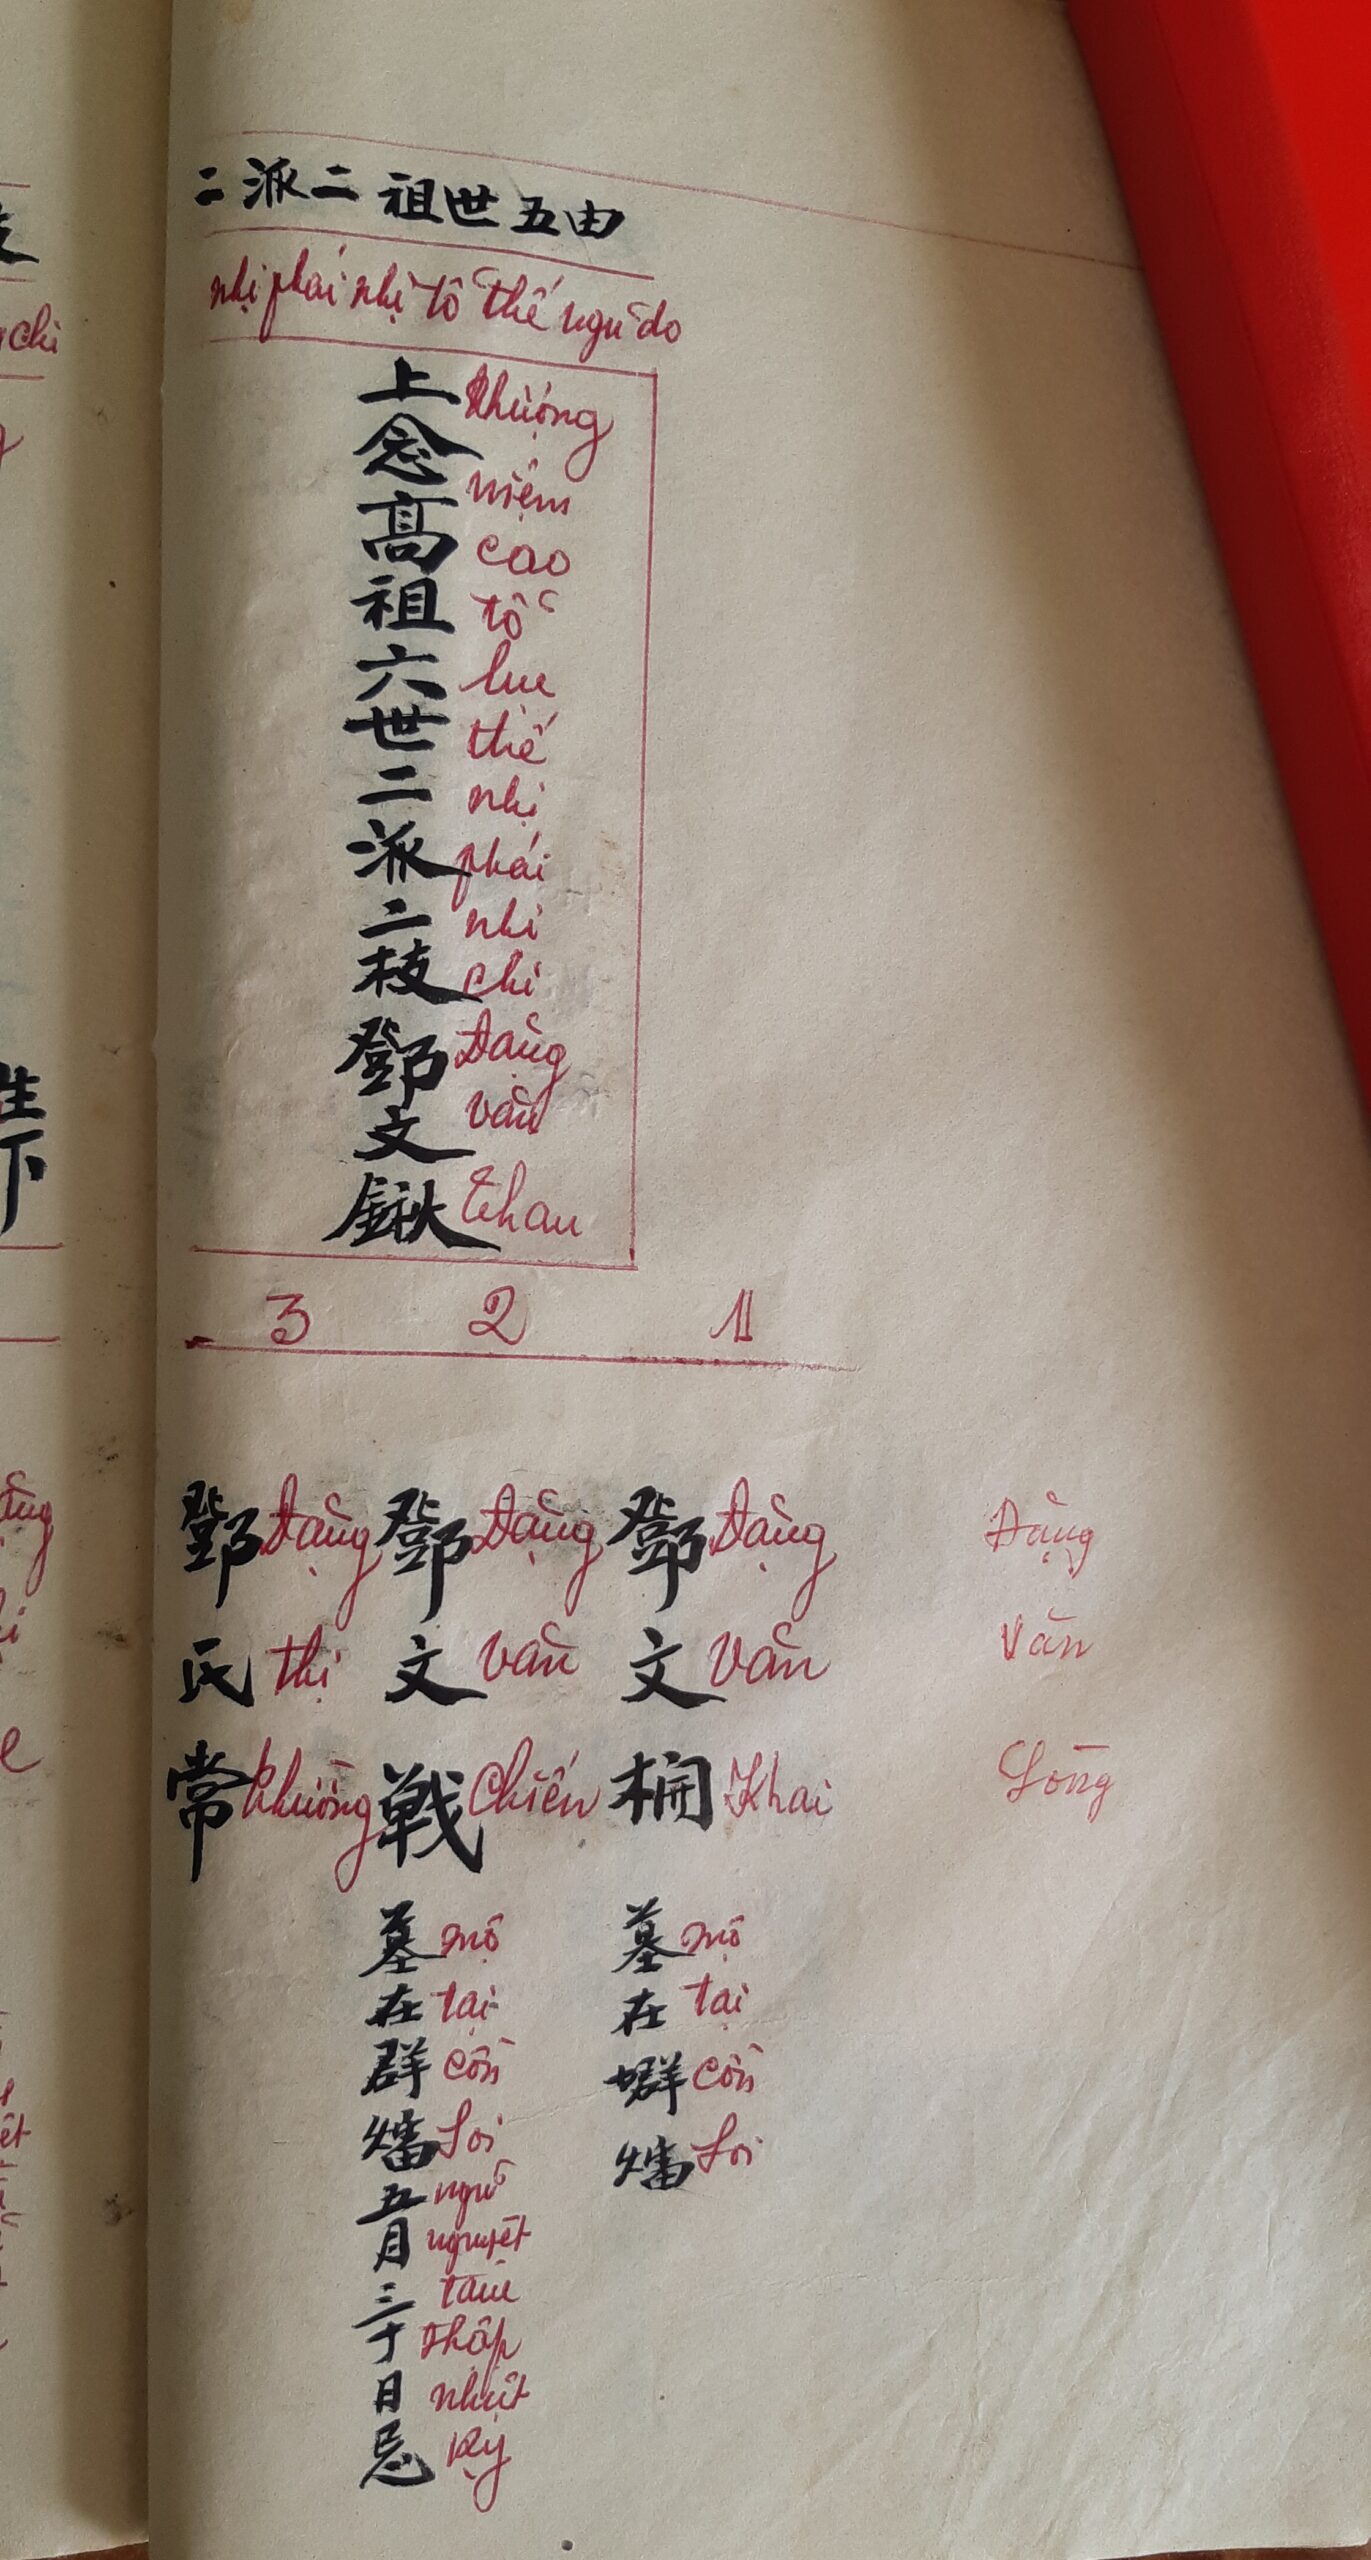 二派二祖世五由
nhị phái nhị tổ thế ngũ do
上念高祖六世二派二枝鄧文鍬
thượng niệm cao tổ lục thế nhị phái nhi chi Đặng văn thau
3 2 1
Đặng Văn Long
鄧文
Đặng Văn Khai
墓在
mộ tại cồn Soi
鄧文戦
Đặng văn Chiến
墓在群㸋五月三十日忌
mộ tại cồn Soi ngũ nguyệt tam thập nhựt kỵ
鄧氏常
Đặng thị thường